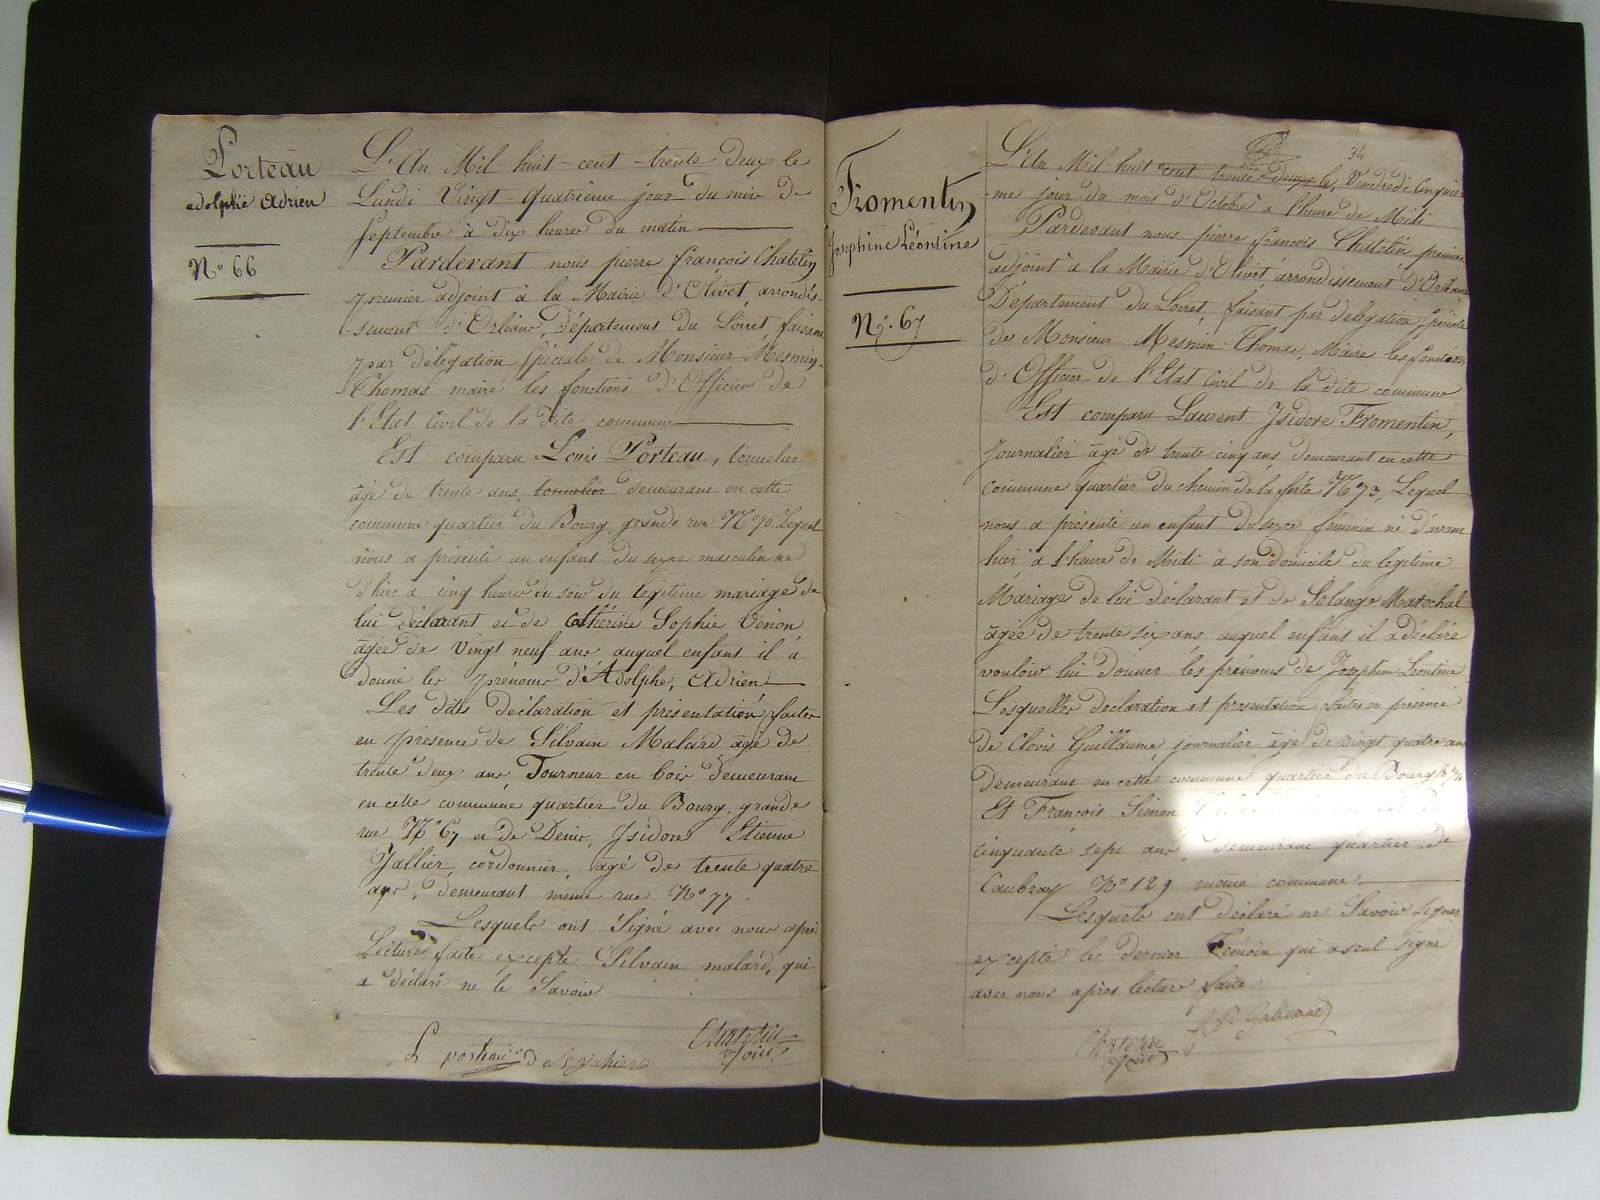 Porteau
adolphe Adrien
N° 66
L'An Mil huit-cent-trente deux le
Lundi Vingt-Quatrième jour du mois de
Septembre à dix heures du matin
Pardevant nous pierre françois Chatelin
premier adjoint à la Mairie d'Olivet, arrondis-
-sement d'Orléans, département du Loiret, faisant
par délégation Spéciale de Monsieur Mesmin-
Thomas maire les fonctions d'Officier de
l'Etat Civil de la dite commune
Est comparu Louis Porteau, tonnelier,
âgé de trente ans, tonnelier demeurant en cette
commune quartier du Bourg, grande rue N° 70. Lequel
nous a présenté un enfant du sexe masculin né
d'hier à cinq heures du soir du légitime mariage de
lui déclarant et de Cathérine Sophie Venon
âgée de Vingt neuf ans auquel enfant il a
donné les prénoms d'Adolphe, Adrien
Les dites déclaration et présentation, faites
en présence de Silvain Malard âgé de
trente deux ans Tourneur en bois demeurant
en cette commune quartier du Bourg, grande
rue N° 67 et de Denis, Isidore Etienne
Jallier, cordonnier, âgé de trente quatre
ans, demeurant même rue N° 77.
Lesquels ont Signé avec nous après
Lecture faite excepté Silvain malard, qui
a déclaré ne le Savoir
L porteau
Chatelin
adjoint
Fromentin
Josephine Léontine
N°. 67
34
L'An Mil huit cent trente-deux le Vendredi Cinquiè-
-me jour du mois d'Octobre à l'heure de Midi
Pardevant nous pierre françois Chatelin premier
adjoint à la Mairie d'Olivet arrondissement d'Orléans
Département du Loiret, faisant par délégation Spéciale
de Monsieur Mesmin-Thomas, Maire les fonctions
d'Officier de l'Etat Civil de la dite commune
Est comparu Laurent Isidore Fromentin,
Journalier âgé de trente cinq ans demeurant en cette
commune quartier du chemin de la ferté N° 73, Lequel
nous a présenté un enfant du sexe féminin né d'avant
hier à l'heure de Midi à son domicile du légitime
Mariage de lui déclarant et de Solange Maréchal
âgée de trente six ans auquel enfant il a déclaré
vouloir lui donner les prénoms de Josephine Léontine
Lesquelles declaration et présentation faites en présence
de Clovis Guillaume, journalier âgé de vingt quatre ans
demeurant en cette commune quartier du Bourg
Et François Simon
cinquante sept ans, demeurant quartier de
Caubray N° 129 même commune
Lesquels ont déclaré ne Savoir signer
excepté le dernier Témoin qui a seul signé
avec nous après lecture faite
Chatelin
adjoint